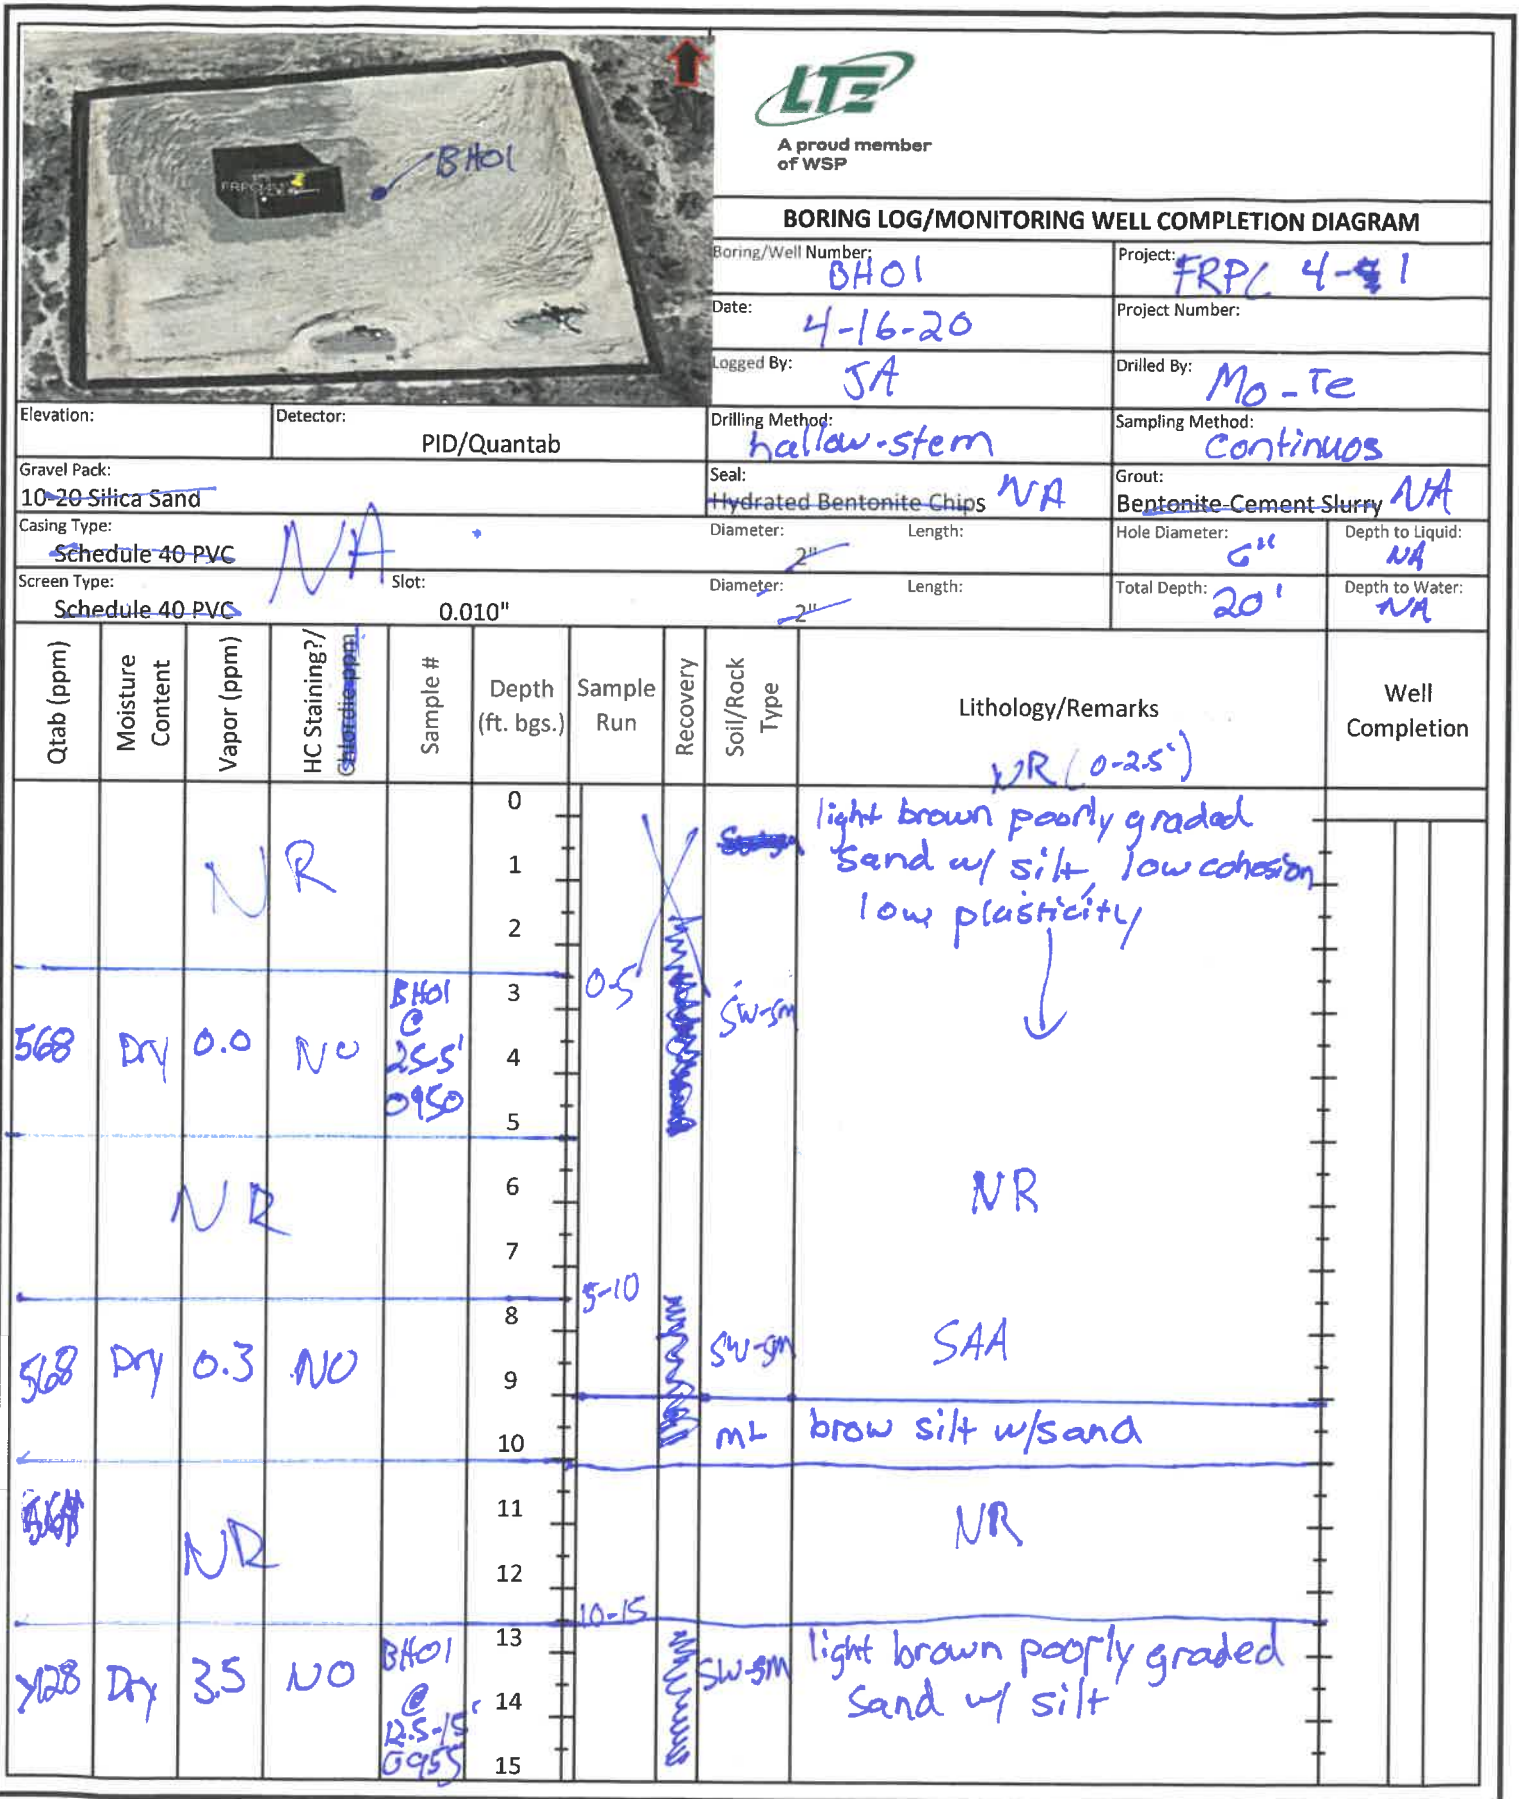 BH01
LTE
A proud member
of WSP
BORING LOG/MONITORING WELL COMPLETION DIAGRAM
Boring/Well Number: BH01
Project: FRPC 4-1
Date: 4-16-20
Project Number:
Logged By: JA
Drilled By: Mo-Te
Elevation:
Detector: PID/Quantab
Drilling Method: hallow-stem
Sampling Method: Continuos
Gravel Pack: 10-20 Silica Sand
Seal: Hydrated Bentonite Chips NA
Grout: Bentonite-Cement Slurry NA
Casing Type: Schedule 40 PVC
NA
Diameter: 2"
Length:
Hole Diameter: 6"
Depth to Liquid: NA
Screen Type: Schedule 40 PVC
Slot: 0.010"
Diameter: 2"
Length:
Total Depth: 20'
Depth to Water: NA
Qtab (ppm)
Moisture Content
Vapor (ppm)
HC Staining?/
Chlordie ppm
Sample #
Depth (ft. bgs.)
Sample Run
Recovery
Soil/Rock Type
Lithology/Remarks
NR (0-2.5')
Well Completion
0
light brown poorly graded
1
sand w/ silt, low cohosion
NR
low plasticity
2
3
0-5
SW-SM
568
Dry
0.0
NO
BH01
@
2.5-5'
0950
4
5
6
NR
NR
7
5-10
8
568
Dry
0.3
NO
9
SW-SM
SAA
10
ML
brow silt w/sand
11
NR
NR
12
10-15
13
light brown poorly graded
sand w/ silt
Dry
3.5
NO
BH01
@
12.5-15'
0955
14
SW-SM
15